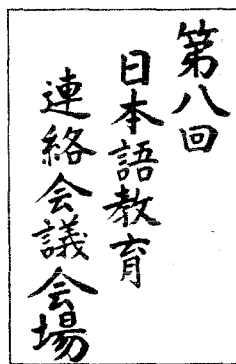 第八回
日本語教育
連絡会議会場